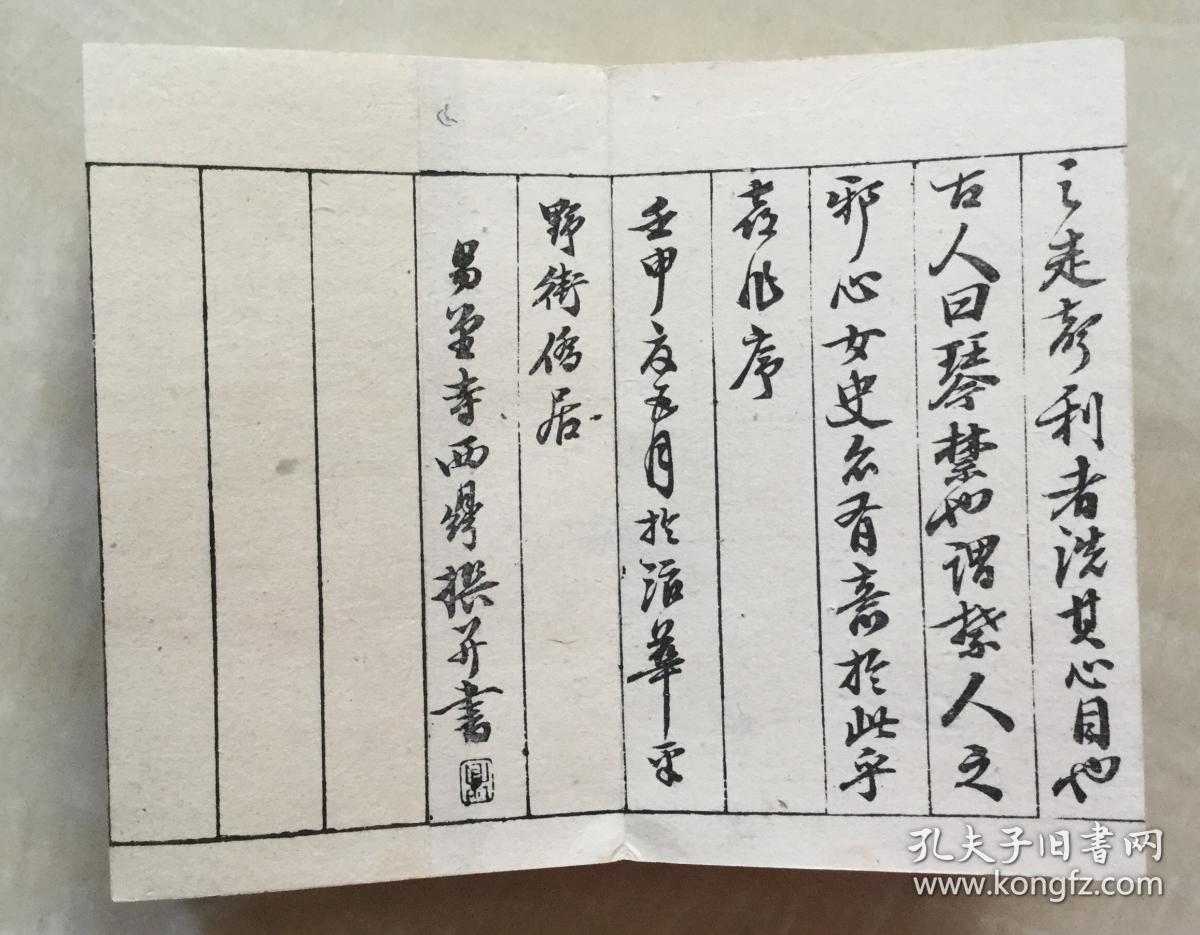 之走聲利者洗其心目也
古人曰琴禁也謂禁人之
邪心女史名有意於此乎
喜作序
壬申夏五月於活華平
野街僑居
易堂寺西鼎撰并書
孔夫子旧书网
www.kongfz.com